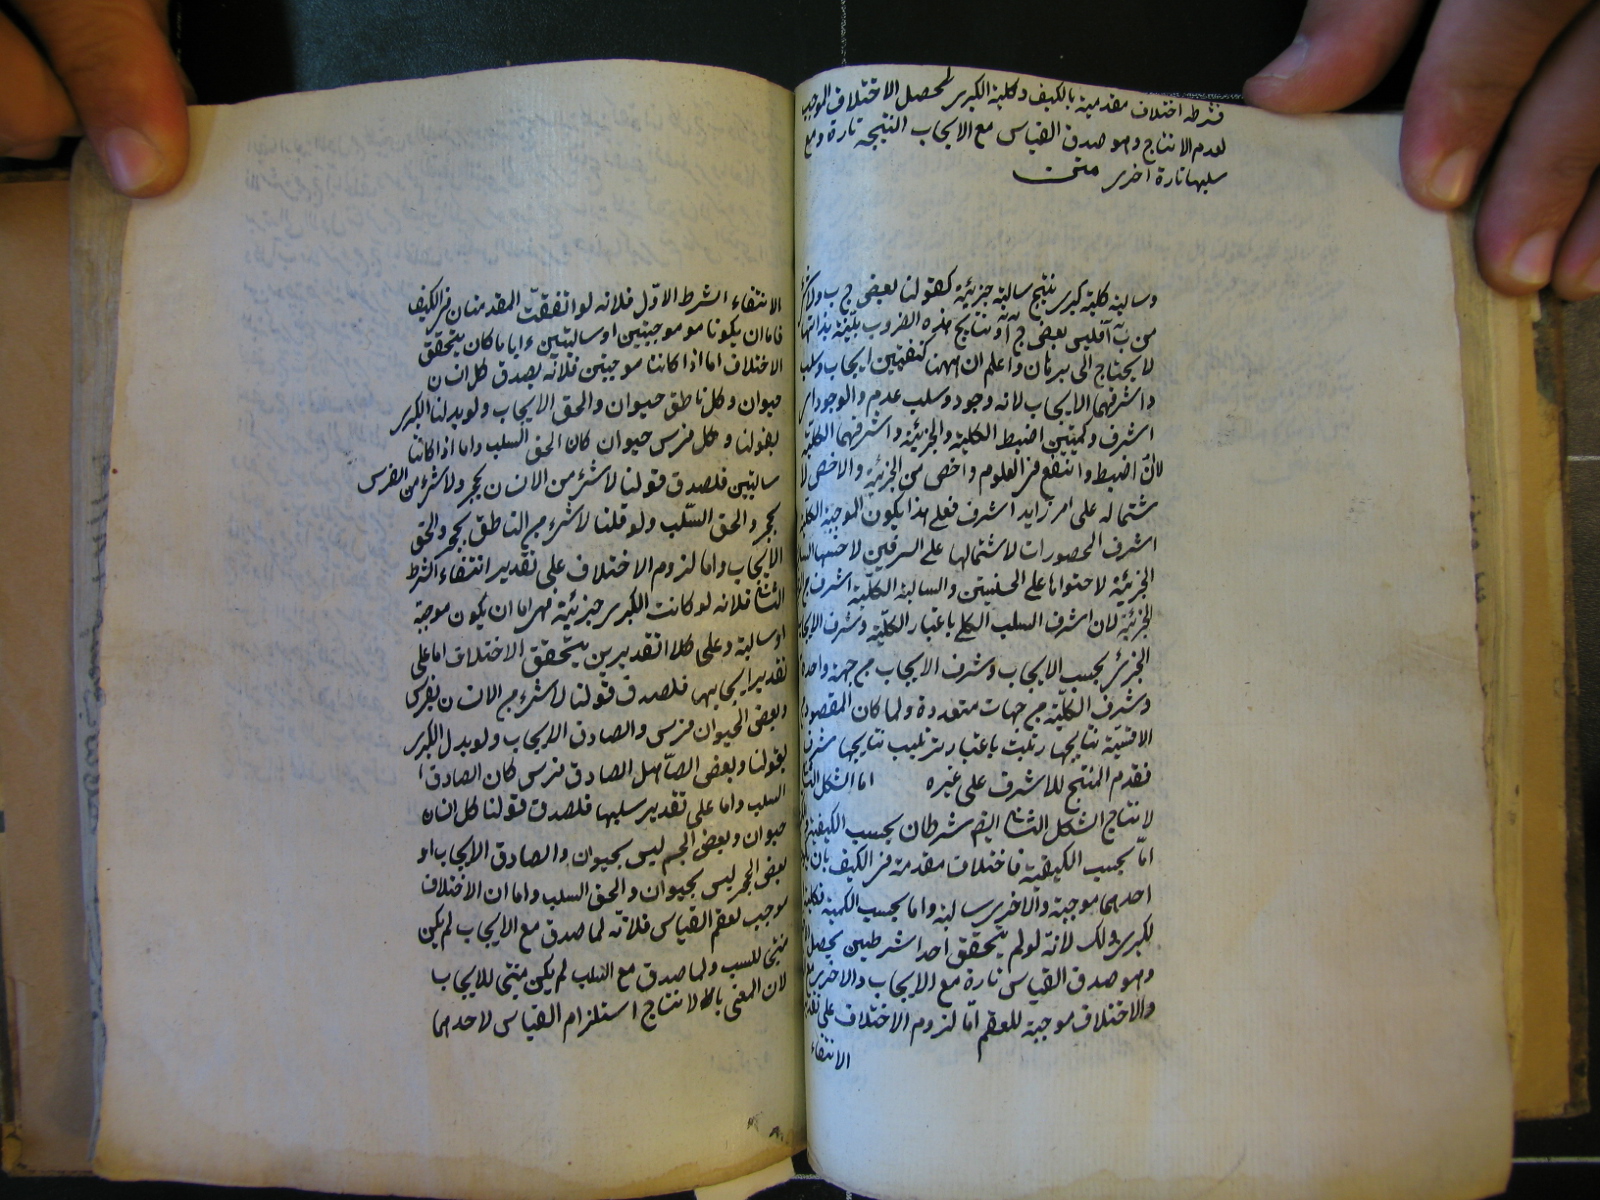 فشرطه اختلاف مقدمتيه بالكيف وكلية الكبرى ليحصل الاختلاف الموجب
لعدم الانتاج وهو صدق القياس مع الايجاب النتيجة تارة ومع
سلبها تارة اخرى متن
وسالبة كلية كبرى ينتج سالبة جزئية كقولنا بعض ج ب ولا شئ
من ب ا فليس بعض ج ا ونتايج هذه الضروب بينة بذاتها
لا يحتاج الى برهان واعلم ان ههنا كيفيتين ايجاب وسلب
واشرفهما الايجاب لانه وجود وسلب عدم والوجود
اشرف وكميتين اضبط الكلية والجزئية واشرفهما الكلية
لان اضبط وانفع فى العلوم واخص من الجزئية والاخص
شتماله على امر زايد اشرف فعلى هذا يكون الموجبة الكلية
اشرف المحصورات لاشتمالها على الشرفين لاخسها
الجزئية لاحتوائها على الخستين والسالبة الكلية اشرف من
الجزئية لان اشرف السلب الكلى باعتبار الكلية وشرف الايجاب
الجزئى بحسب الايجاب وشرف الايجاب من جهة واحدة
وشرف الكلية من جهات متعددة ولما كان المقصود
الاقيسة نتايجها رتبت باعتبار ترتيب نتايجها شرفا
فقدم المنتج للاشرف على غيره اما الشكل الثانى
لانتاج الشكل الثانى ايضا شرطان بحسب الكيفية
اما بحسب الكيفية فاختلاف مقدمة فى الكيف بان يكون
احدهما موجبة والاخرى سالبة واما بحسب الكمية فكلية
لكبرى وذلك لانه لو لم يتحقق احد اشرطين يحصل
وهو صدق القياس تارة مع الايجاب والاخرى مع
والاختلاف موجبة للعقم اما لزوم الاختلاف على تقدير
الانتفاء
الانتفاء الشرط الاول فلانه لو اتفقت المقدمتان فى الكيف
فاما ان يكونا موجبتين او سالبتين ء اياما كان يتحقق
الاختلاف اما اذا كانتا موجبتين فلانه يصدق كل انسان
حيوان وكل ناطق حيوان والحق الايجاب ولو بدلنا الكبرى
بقولنا وكل فرس حيوان كان الحق السلب واما اذا كانتا
سالبتين فلصدق قولنا لا شئ من الانسان بحجر ولا شئ من الفرس
بحجر والحق السلب ولو قلنا لا شئ من الناطق بحجر والحق
الايجاب واما لزوم الاختلاف على تقدير انتفاء الشرط
الثانى فلانه لو كانت الكبرى جزئية فهى اما ان يكون موجبة
او سالبة وعلى كلا التقديرين يتحقق الاختلاف اما على
تقدير ايجابها فلصدق قولنا لا شئ من الانسان بفرس
وبعض الحيوان فرس والصادق الايجاب ولو بدل الكبرى
بقولنا وبعض الصاهل الصادق فرس كان الصادق
السلب واما على تقدير سلبها فلصدق قولنا كل انسان
حيوان وبعض الجسم ليس بحيوان والصادق الايجاب او
بعض الحجر ليس بحيوان والحق السلب واما ان الاختلاف
موجب لعقم القياس فلانه لما صدق مع الايجاب لم يكن
منتجا للسب ولما صدق مع السلب لم يكن منتجى للايجاب
لان المعنى بالانتاج استلزام القياس لاحدهما